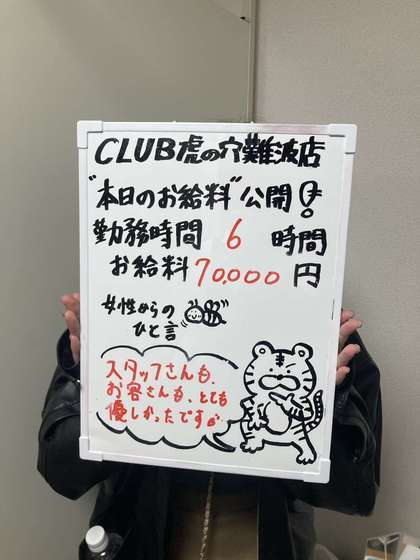 CLUB虎の穴難波店
"本日のお給料"公開!
勤務時間 6 時間
お給料70,000円
女性からの
ひと言
スタッフさんも、
お客さんも、とても
優しかったですが